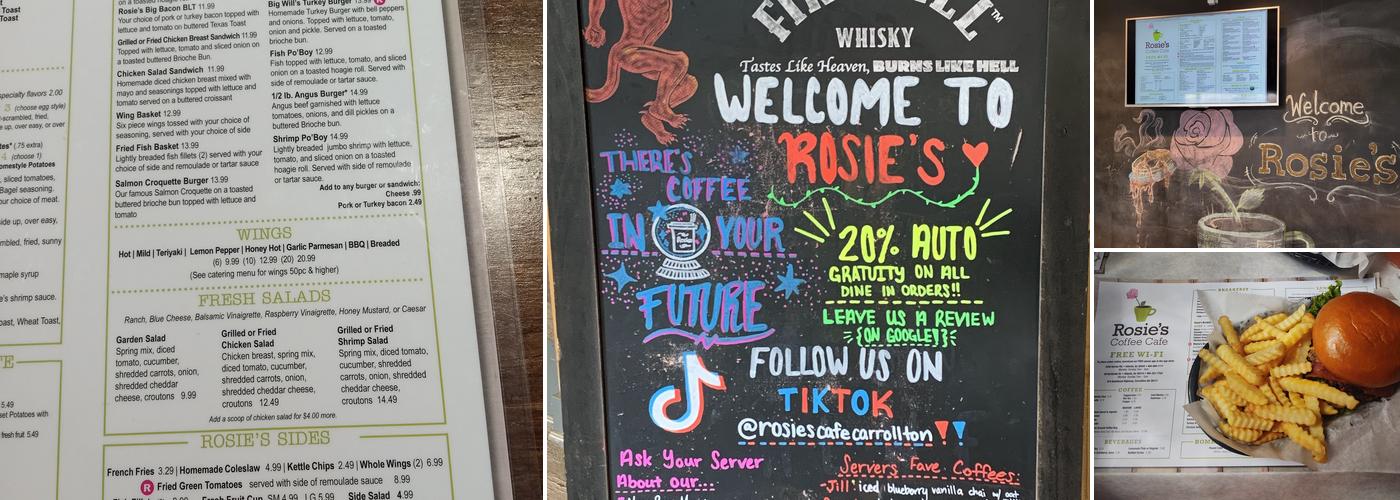 Toast
t Toast
specialty flavors 2.00
3 (choose egg style)
-scrambled, fried,
e up, over easy, or over
tes* (.75 extra)
4 (choose 1)
omestyle Potatoes
sliced tomatoes,
Bagel seasoning.
our choice of meat.
ide up, over easy,
mbled, fried, sunny
maple syrup
e's shrimp sauce.
oast, Wheat Toast,
5.49
set Potatoes with
fresh fruit 5.49
on a toasted hoagie roll.
Rosie's Big Bacon BLT 11.99
Your choice of pork or turkey bacon topped with
lettuce and tomato on buttered Texas Toast
Grilled or Fried Chicken Breast Sandwich 11.99
Topped with lettuce, tomato and sliced onion on
a toasted buttered Brioche Bun.
Chicken Salad Sandwich 11.99
Homemade diced chicken breast mixed with
mayo and seasonings topped with lettuce and
tomato served on a buttered croissant
Wing Basket 12.99
Six piece wings tossed with your choice of
seasoning, served with your choice of side
Fried Fish Basket 13.99
Lightly breaded fish fillets (2) served with your
choice of side and remoulade or tartar sauce
Salmon Croquette Burger 13.99
Our famous Salmon Croquette on a toasted
buttered brioche bun topped with lettuce and
tomato
Big Will's Turkey Burger 13.99 R
Homemade Turkey Burger with bell peppers
and onions. Topped with lettuce, tomato,
onion and pickle. Served on a toasted
brioche bun.
Fish Po'Boy 12.99
Fish topped with lettuce, tomato, and sliced
onion on a toasted hoagie roll. Served with
side of remoulade or tartar sauce.
1/2 lb. Angus Burger* 14.99
Angus beef garnished with lettuce
tomatoes, onions, and dill pickles on a
buttered Brioche bun.
Shrimp Po'Boy 14.99
Lightly breaded jumbo shrimp with lettuce,
tomato, and sliced onion on a toasted
hoagie roll. Served with side of remoulade
or tartar sauce.
Add to any burger or sandwich:
Cheese .99
Pork or Turkey bacon 2.49
WINGS
Hot | Mild | Teriyaki | Lemon Pepper | Honey Hot | Garlic Parmesan | BBQ | Breaded
(6) 9.99 (10) 12.99 (20) 20.99
(See catering menu for wings 50pc & higher)
FRESH SALADS
Ranch, Blue Cheese, Balsamic Vinaigrette, Raspberry Vinaigrette, Honey Mustard, or Caesar
Garden Salad
Spring mix, diced
tomato, cucumber,
shredded carrots, onion,
shredded cheddar
cheese, croutons 9.99
Grilled or Fried
Chicken Salad
Chicken breast, spring mix,
diced tomato, cucumber,
shredded carrots, onion,
shredded cheddar cheese,
croutons 12.49
Grilled or Fried
Shrimp Salad
Spring mix, diced tomato,
cucumber, shredded
carrots, onion, shredded
cheddar cheese,
croutons 14.49
Add a scoop of chicken salad for $4.00 more.
ROSIE'S SIDES
French Fries 3.29 | Homemade Coleslaw 4.99 | Kettle Chips 2.49 | Whole Wings (2) 6.99
R Fried Green Tomatoes served with side of remoulade sauce 8.99
Fresh Fruit Cup SM 4.99 LG 5.99 Side Salad 4.99
WHISKY
Tastes Like Heaven, BURNS LIKE HELL
WELCOME TO
ROSIE'S
THERE'S
COFFEE
IN YOUR
FUTURE
20% AUTO
GRATUITY ON ALL
DINE IN ORDERS!!
LEAVE US A REVIEW
{ON GOOGLE!}
FOLLOW US ON
TIKTOK
@rosiescafecarrollton!!
Ask Your Server
About our...
Servers Fave Coffees:
-Jill: iced blueberry vanilla chai w/ oat
Rosie's
Coffee Cafe
Welcome
to
Rosie's
Rosie's
Coffee Cafe
FREE WI-FI
COFFEE
BEVERAGES
BREAKFAST